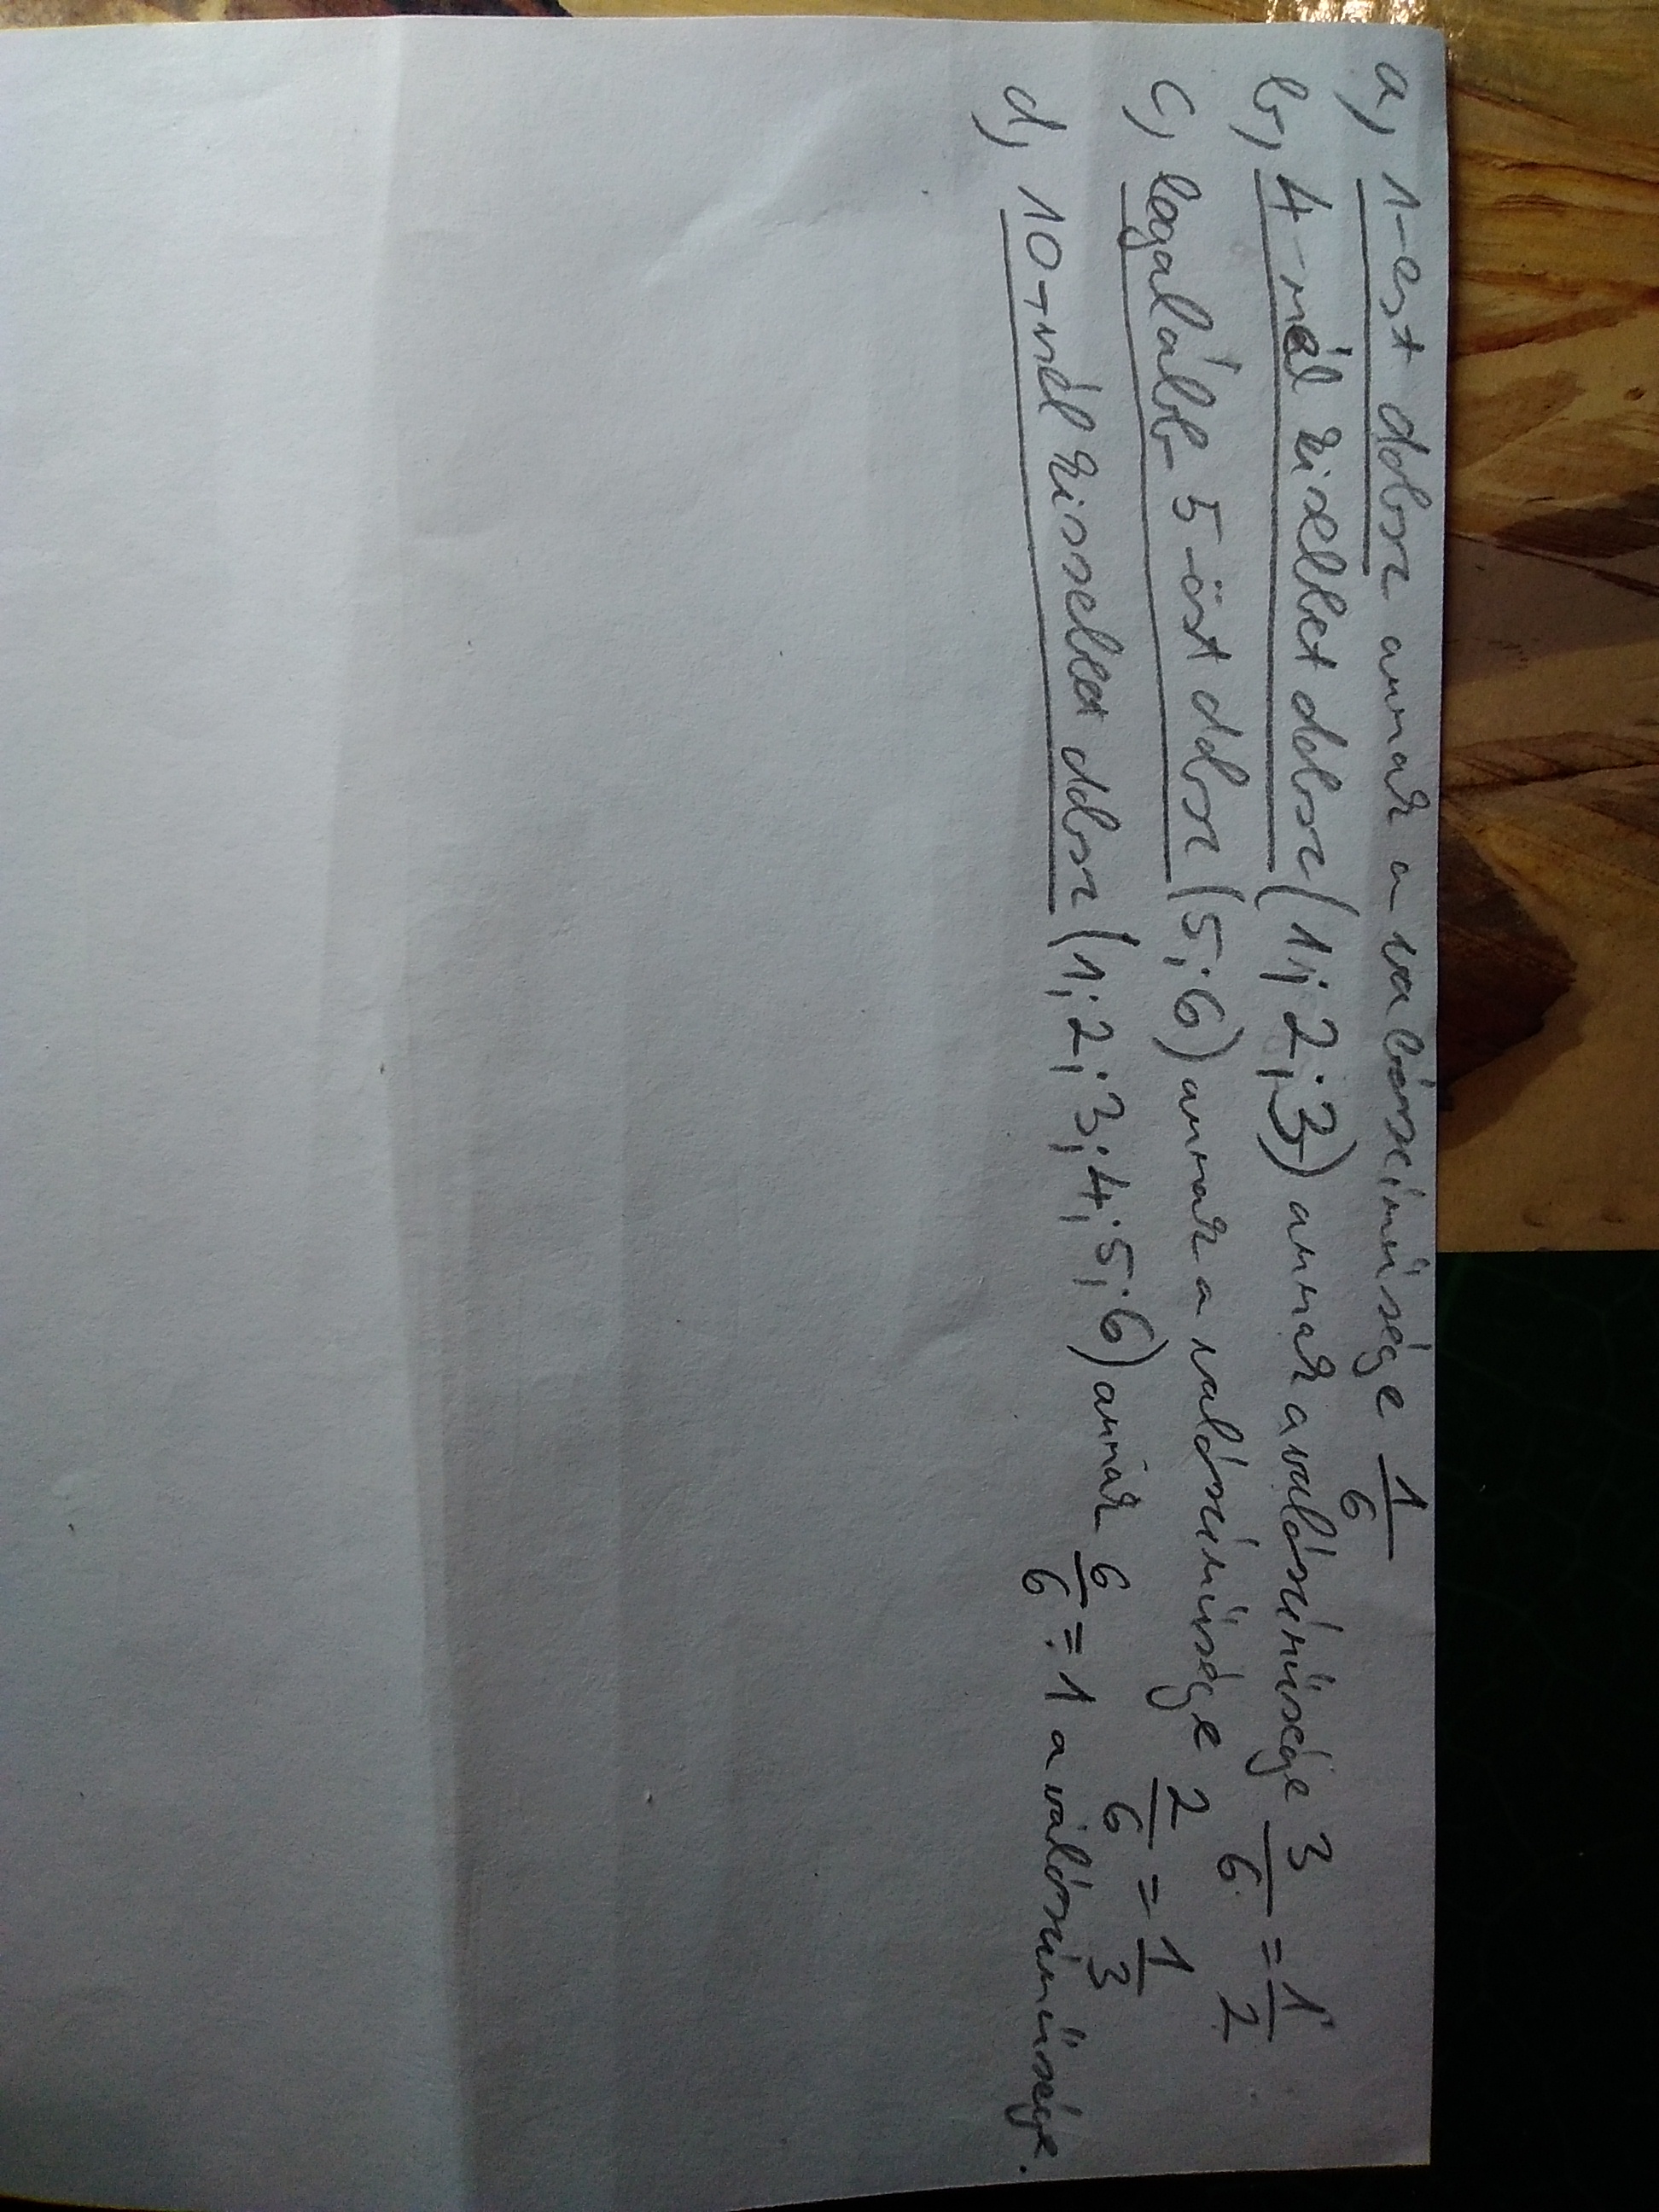 a, 1-est dobsz annak a valószínűsége 1/6
b, 4-nél kisebbet dobsz (1; 2; 3) annak a valószínűsége 3/6 = 1/2
c, legalább 5-öst dobsz (5; 6) annak a valószínűsége 2/6 = 1/3
d, 10-nél kissebbet dobsz (1; 2; 3; 4; 5; 6) annak 6/6 = 1 a valószínűsége.